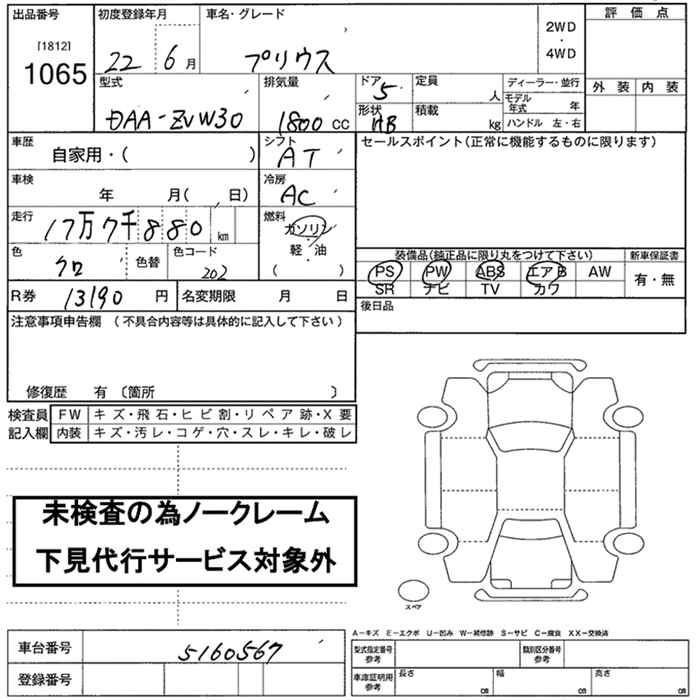 出品番号
[1812]
1065
初度登録年月
22 6月
車名・グレード
プリウス
2WD
・
4WD
評価点
外装 内装
型式
DAA-ZVW30
排気量
1800 CC
ドア 5
形状 HB
定員 人
積載 kg
ディーラー・並行
モデル年式 年
ハンドル 左・右
車歴
自家用・( )
シフト
AT
セールスポイント(正常に機能するものに限ります)
車検
年 月( 日)
冷房
AC
走行
17万7千880 km
燃料
ガソリン
軽・油
( ・ )
色
クロ
色替
色コード
202
装備品(純正品に限り丸をつけて下さい)
PS PW ABS エアB AW
SR ナビ TV カワ
新車保証書
有・無
R券 13190 円
名変期限 月 日
後日品
注意事項申告欄 (不具合内容等は具体的に記入して下さい)
修復歴 有 〔箇所 〕
検査員記入欄
FW キズ・飛石・ヒビ割・リペア跡・X要
内装 キズ・汚レ・コゲ・穴・スレ・キレ・破レ
未検査の為ノークレーム
下見代行サービス対象外
スペア
A-キズ E-エクボ U-凹み W-補修跡 S-サビ C-腐食 XX-交換済
車台番号 5160567
登録番号
型式指定番号参考
類別区分番号参考
車庫証明用参考
長さ cm
幅 cm
高さ cm